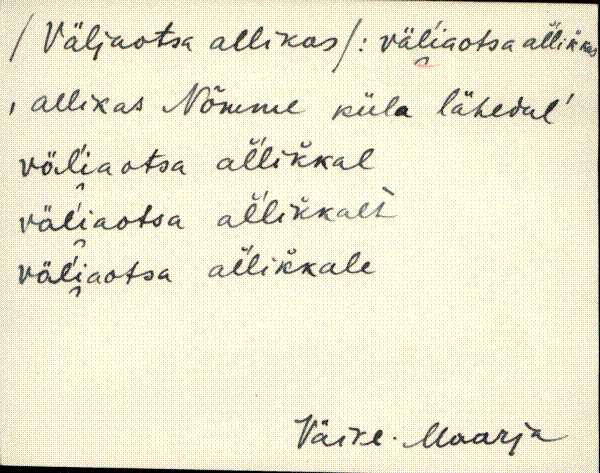 /Väljaotsa allikas/: väĺi̯aotsa al̆likkas
, allikas Nõmme küla lähedal'
väĺi̯aotsa al̆lik̆kal
väĺi̯aotsa al̆lik̆kalt
väĺi̯aotsa al̆lik̆kale
Väike-Maarja